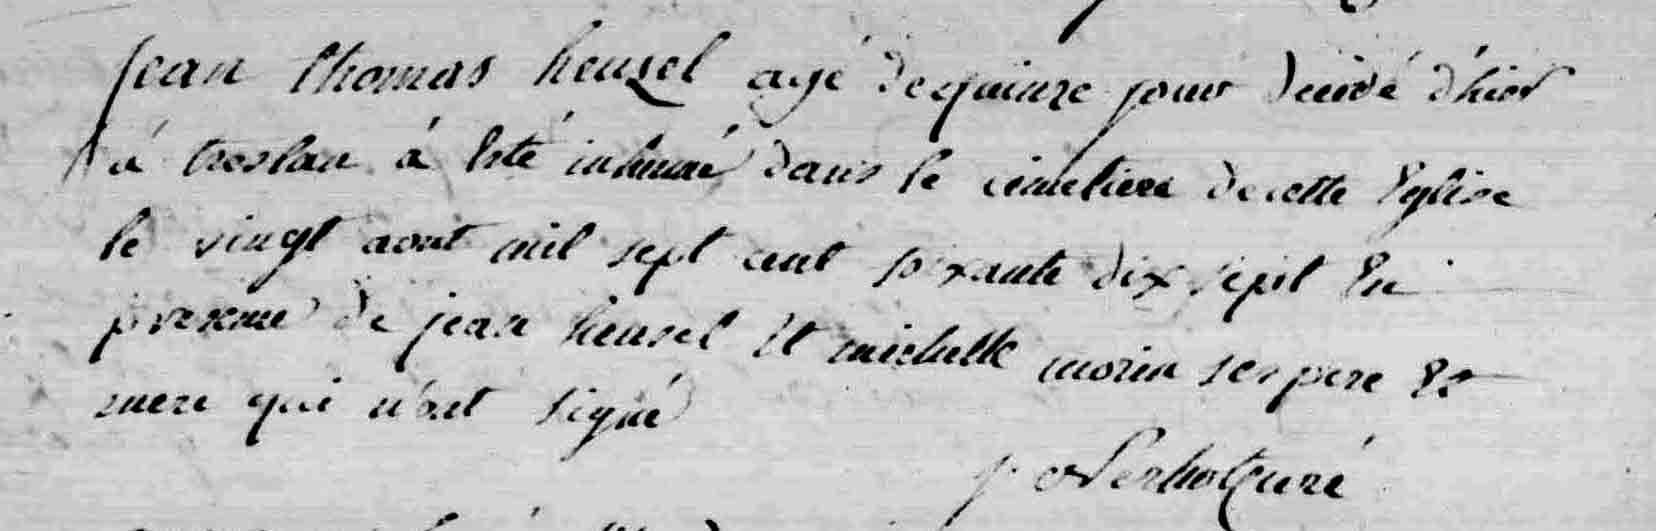 jean thomas heuzel agé de quinze jour decédé d'hier
á treslan á Eté inhumé dans le cimetiere de cette Eglise
le vingt aout mil sept cent soixante dix sept En
presence de jean heuzel Et michelle morin ses pere Et
mere qui n'ont signé
curé